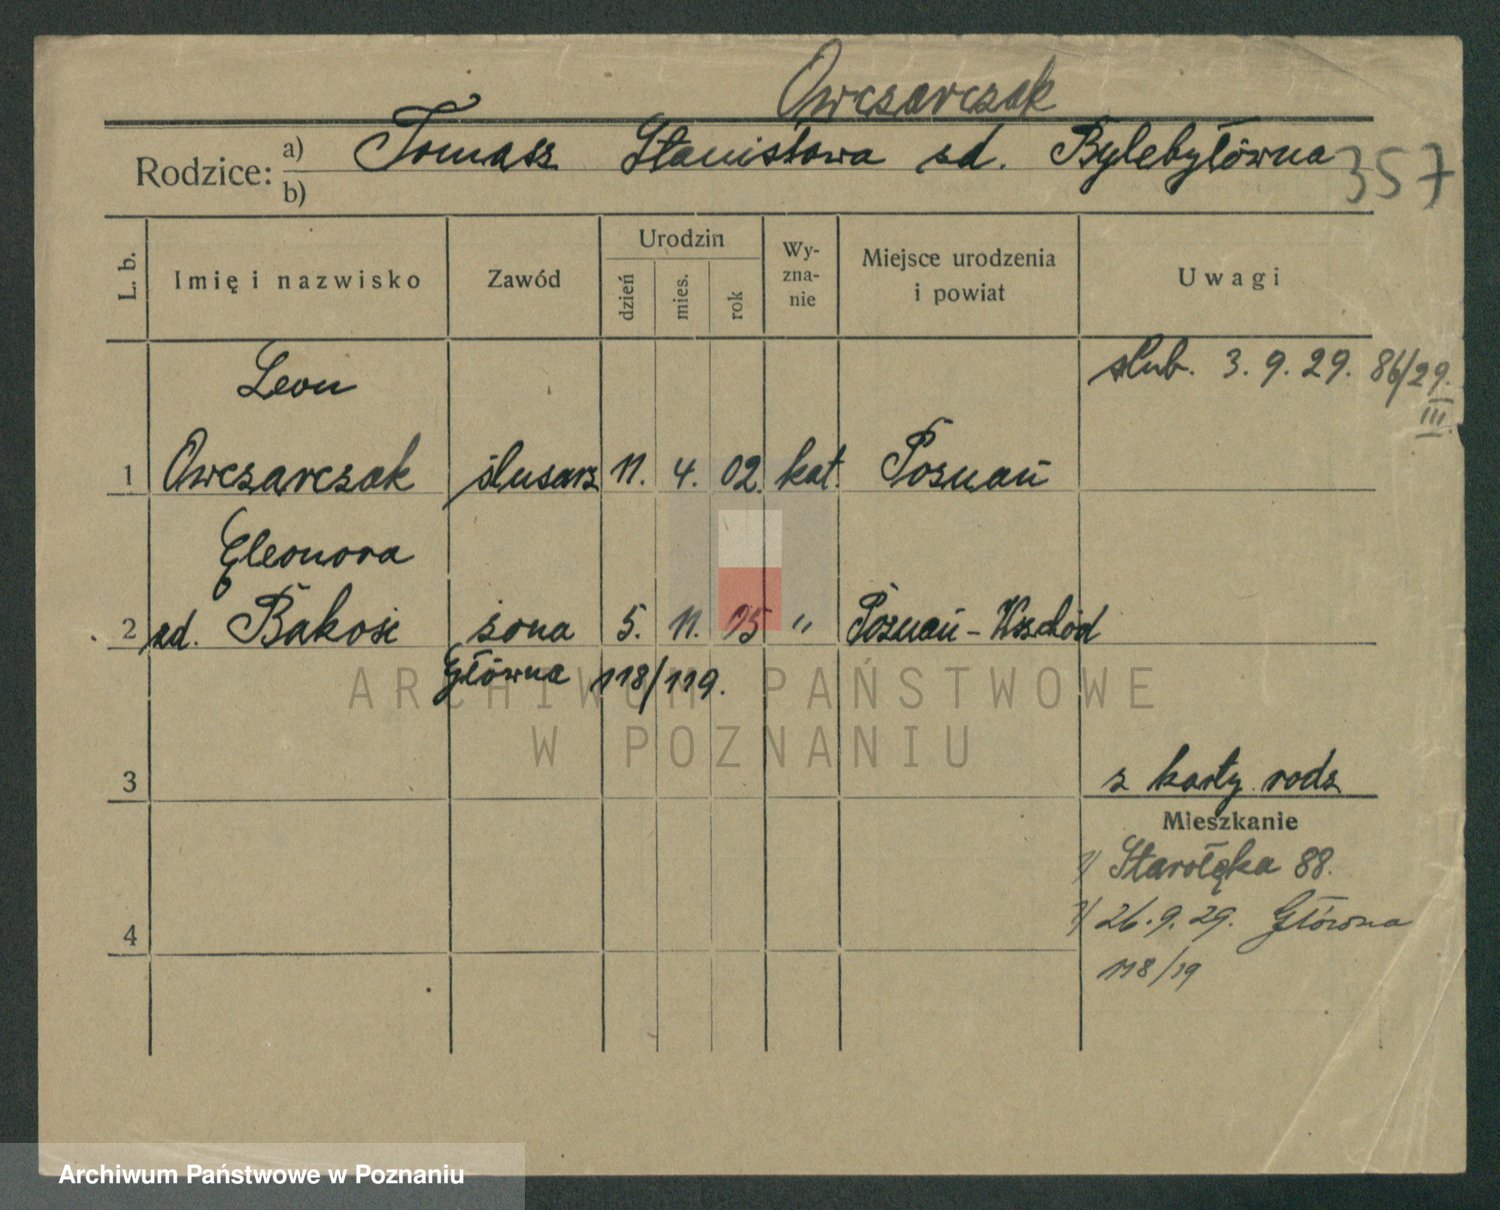 Owczarczak
Rodzice: a) Tomasz Stanisława zd. Bylebyłówna 357
b)
L. b. Imię i nazwisko Zawód Urodzin Wy-zna-nie Miejsce urodzenia i powiat Uwagi
dzień mies. rok
Leon ślub. 3. 9. 29. 86/29.
III
1 Owczarczak ślusarz 11. 4. 02. kat. Poznań
Eleonora
2 zd. Bakoś żona 5. 11. 05 " Poznań - Wschód
Główna 118/119.
ARCHIWUM PAŃSTWOWE
W POZNANIU
3 z karty rodz
Mieszkanie
1/ Starołęka 88.
4 26. 9. 29. Główna
118/19
Archiwum Państwowe w Poznaniu